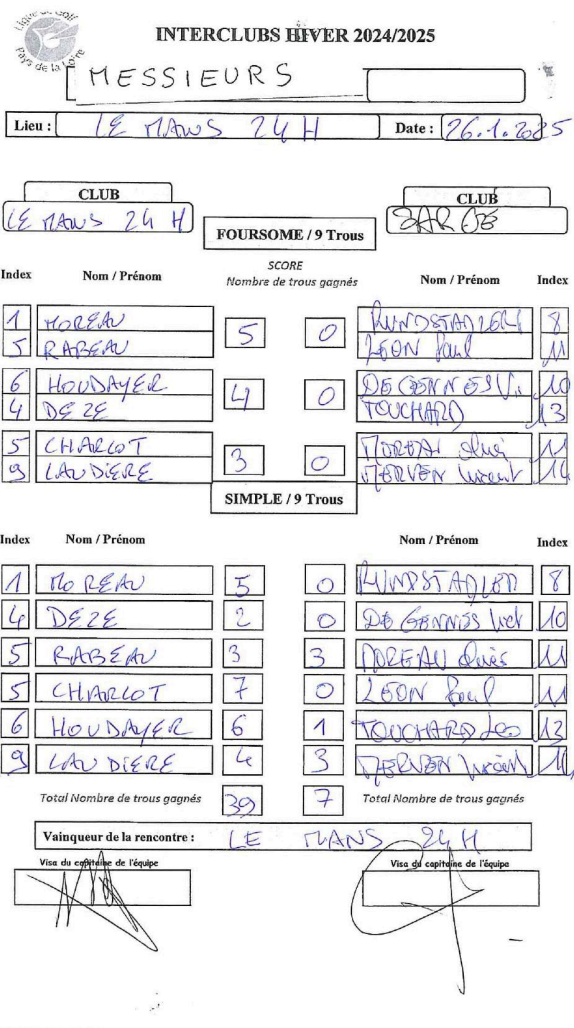 Ligue de Golf
Pays de la Loire
INTERCLUBS HIVER 2024/2025
MESSIEURS
Lieu : LE MANS 24 H Date : 26.1.2025
CLUB CLUB
LE MANS 24 H SARGE
FOURSOME / 9 Trous
SCORE
Nombre de trous gagnés
Index Nom / Prénom Nom / Prénom Index
1 MOREAU 5 0 RUNDSTADLER 8
5 RABEAU LEON Paul 11
6 HOUDAYER 4 0 DE GENNES V. 10
4 DEZE TOUCHARD 13
5 CHARLOT 3 0 MOREAU 11
9 LAUDIERE MERVEN Vincent 14
SIMPLE / 9 Trous
Index Nom / Prénom Nom / Prénom Index
1 MOREAU 5 0 RUNDSTADLER 8
4 DEZE 2 0 DE GENNES 10
5 RABEAU 3 3 MOREAU 11
5 CHARLOT 7 0 LEON Paul 11
6 HOUDAYER 6 1 TOUCHARD Leo 13
9 LAUDIERE 4 3 MERVEN Vincent 14
Total Nombre de trous gagnés 39 7 Total Nombre de trous gagnés
Vainqueur de la rencontre : LE MANS 24 H
Visa du capitaine de l'équipe Visa du capitaine de l'équipe